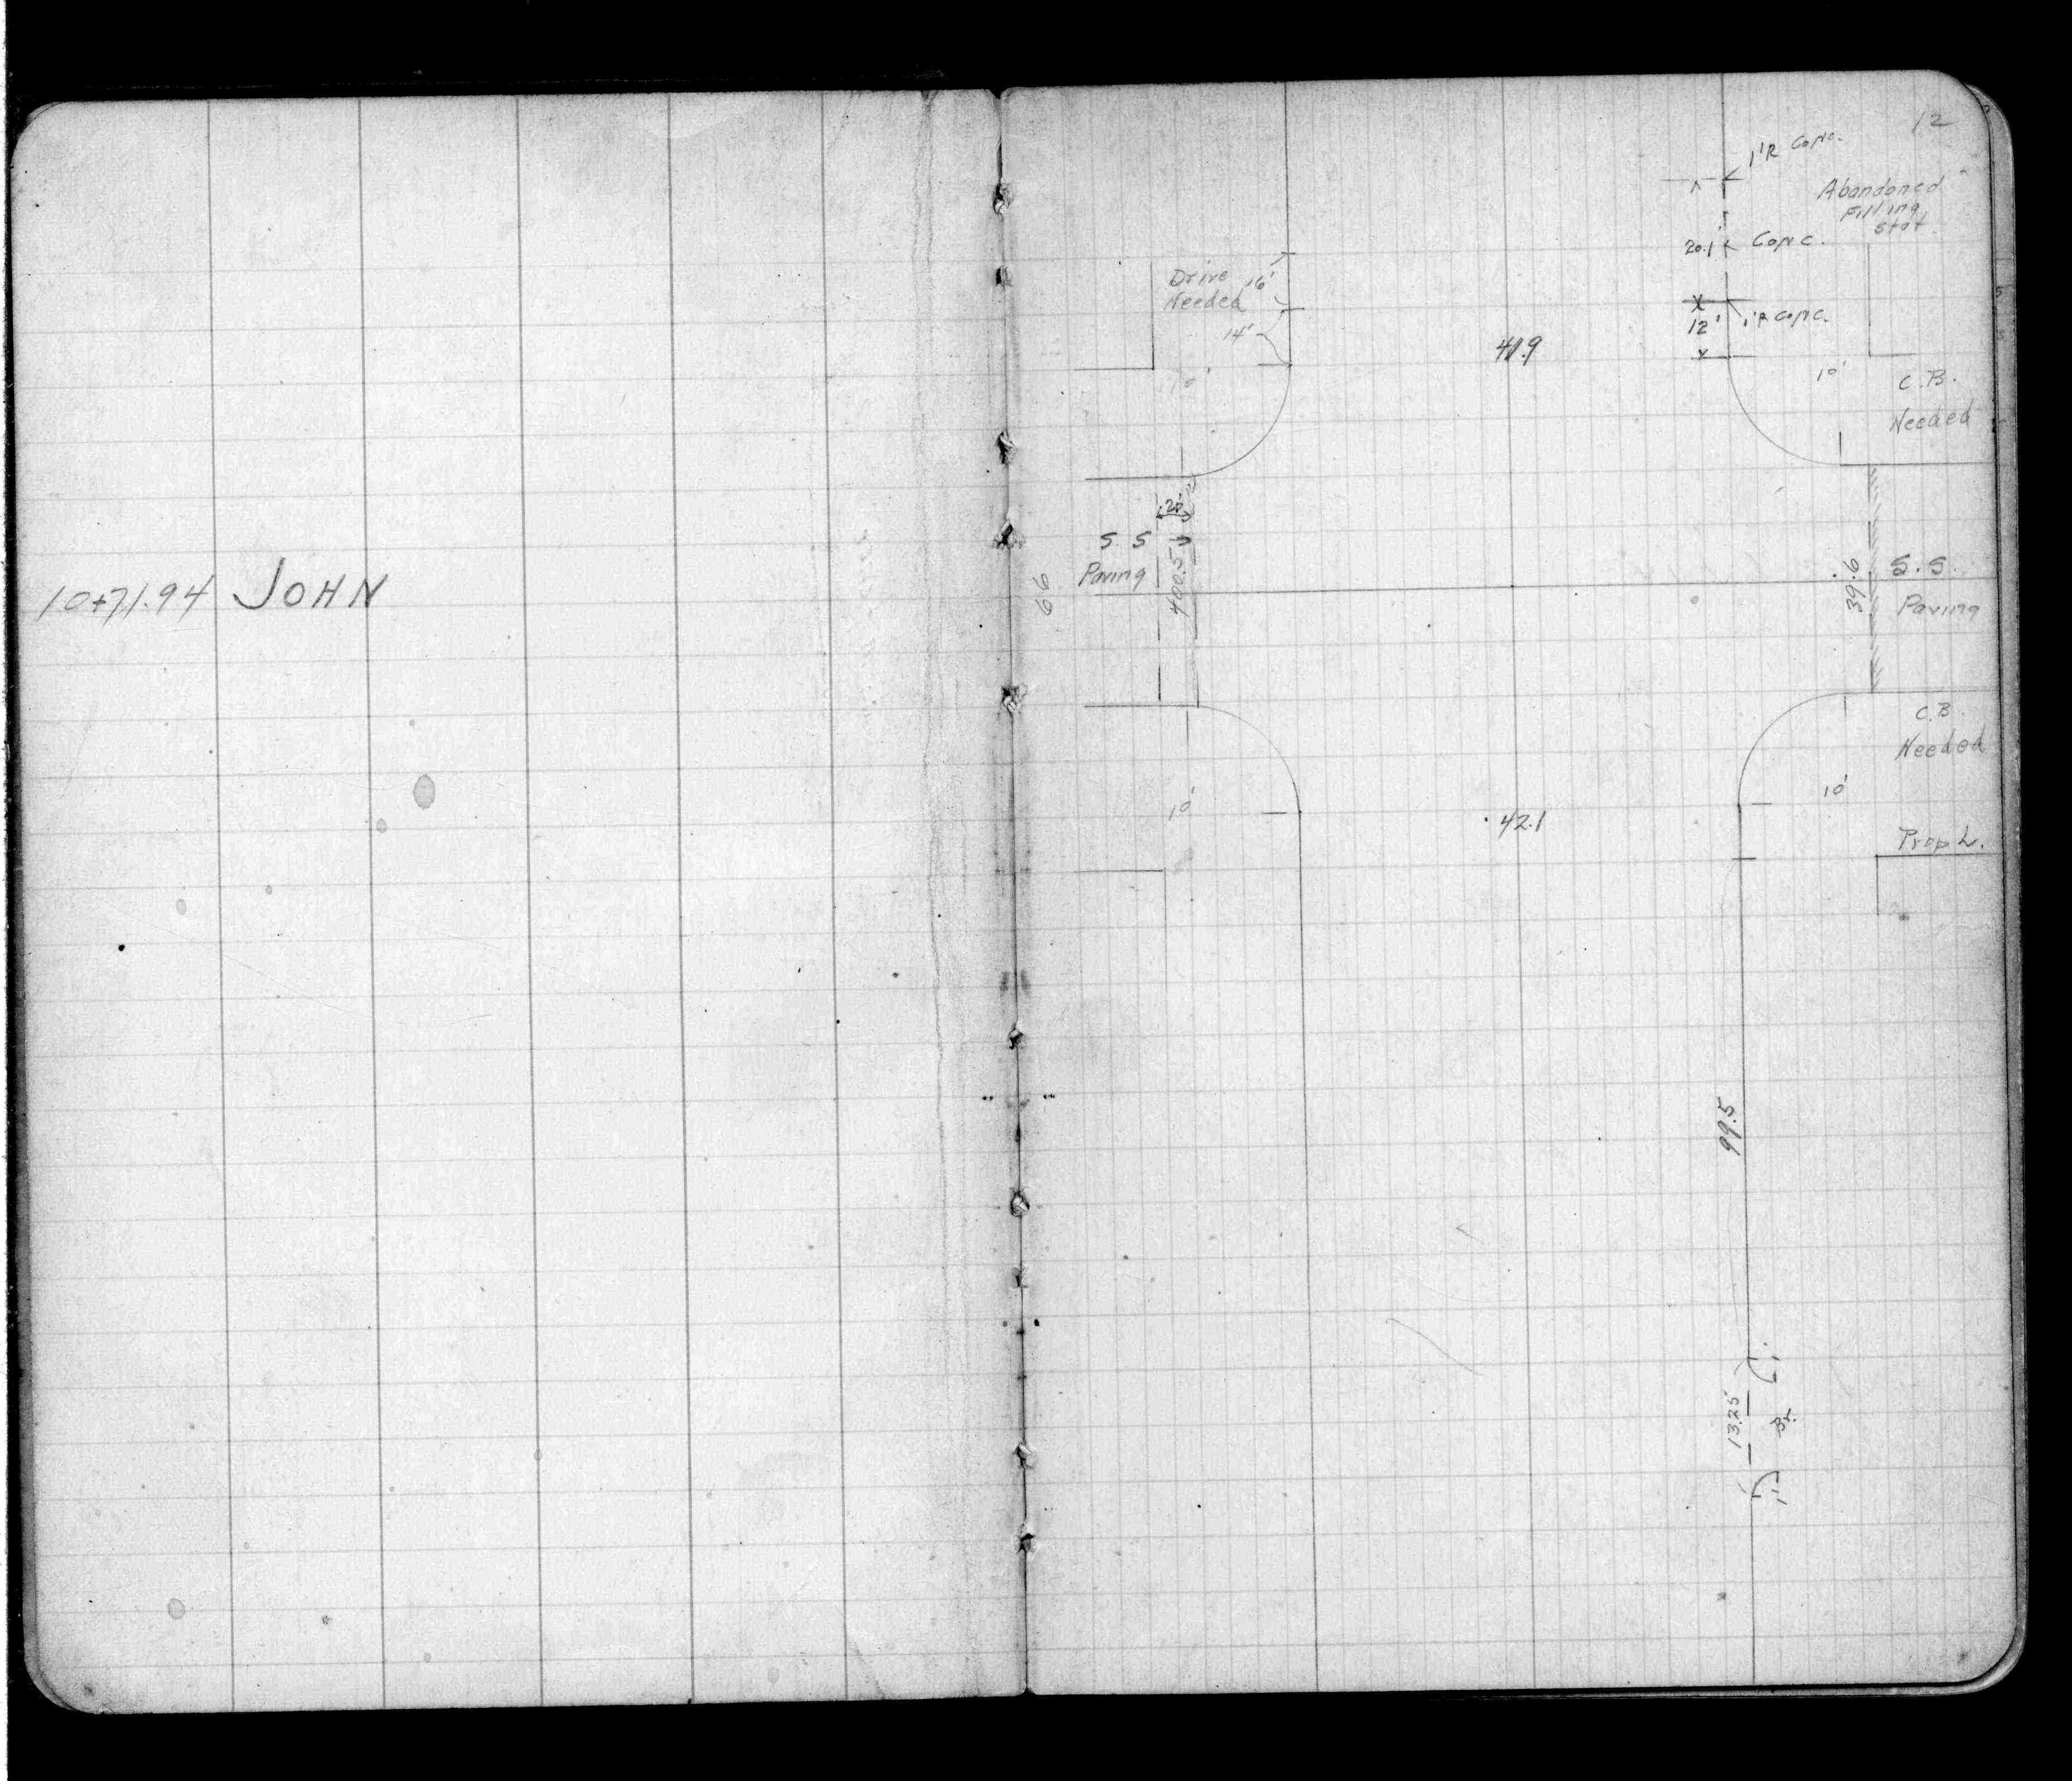 10+71.94 JOHN
12
1'R Conc.
Abandoned
Filling
Stat.
20.1' Conc.
Drive 16'
Needed
14'
12' 1'R Conc.
41.9
10'
10'
C.B.
Needed
S. S
Paving
66
39.6
S.S.
Paving
C.B.
Needed
10'
10'
42.1
Prop L.
99.5
13.25
Br.